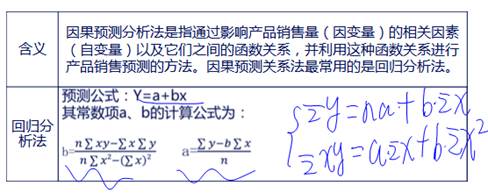 含义
因果预测分析法是指通过影响产品销售量（因变量）的相关因素
（自变量）以及它们之间的函数关系，并利用这种函数关系进行
产品销售预测的方法。因果预测关系法最常用的是回归分析法。
回归分析法
预测公式：Y=a+bx
其常数项a、b的计算公式为：
b=(n∑xy-∑x∑y)/(n∑x²-(∑x)²) a=(∑y-b∑x)/n
∑y=na+b·∑x
∑xy=a∑x+b∑x²